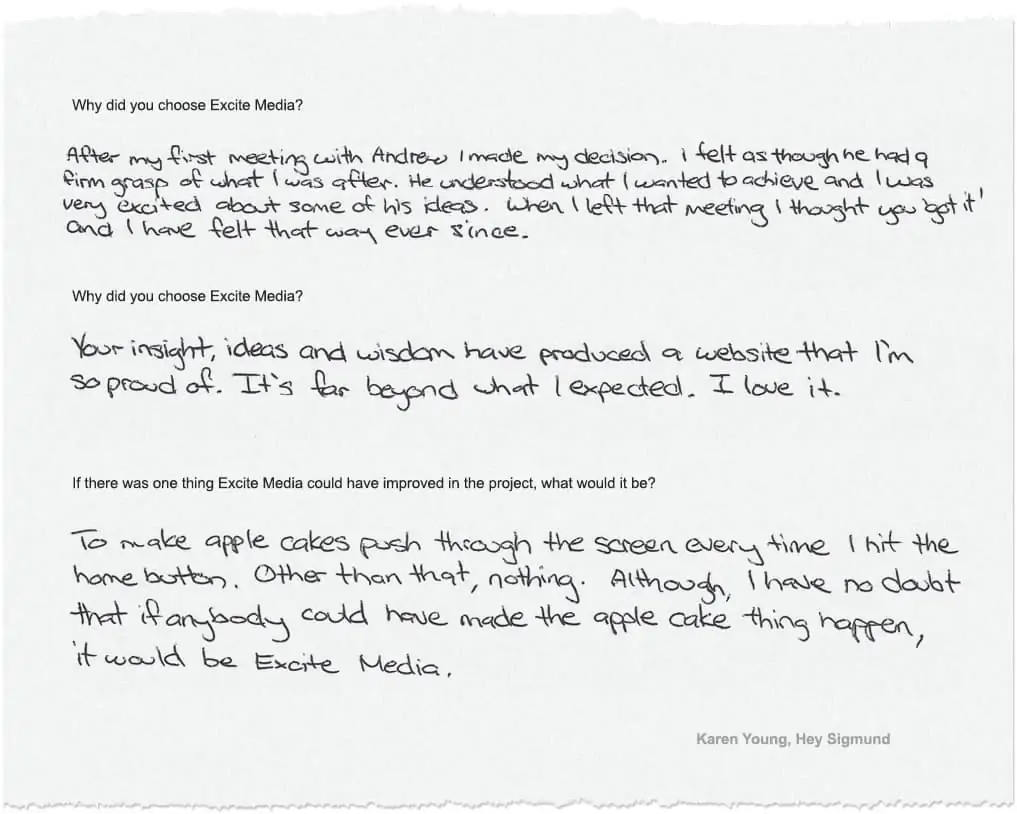 Why did you choose Excite Media?
After my first meeting with Andrew I made my decision. i felt as though he had a
firm grasp of what I was after. He understood what I wanted to achieve and I was
very excited about some of his ideas. When I left that meeting I thought you 'got it'
and I have felt that way ever since.
Why did you choose Excite Media?
Your insight, ideas and wisdom have produced a website that I'm
so proud of. It's far beyond what I expected. I love it.
If there was one thing Excite Media could have improved in the project, what would it be?
To make apple cakes push through the screen every time I hit the
home button. Other than that, nothing. Although, I have no doubt
that if anybody could have made the apple cake thing happen,
it would be Excite Media.
Karen Young, Hey Sigmund